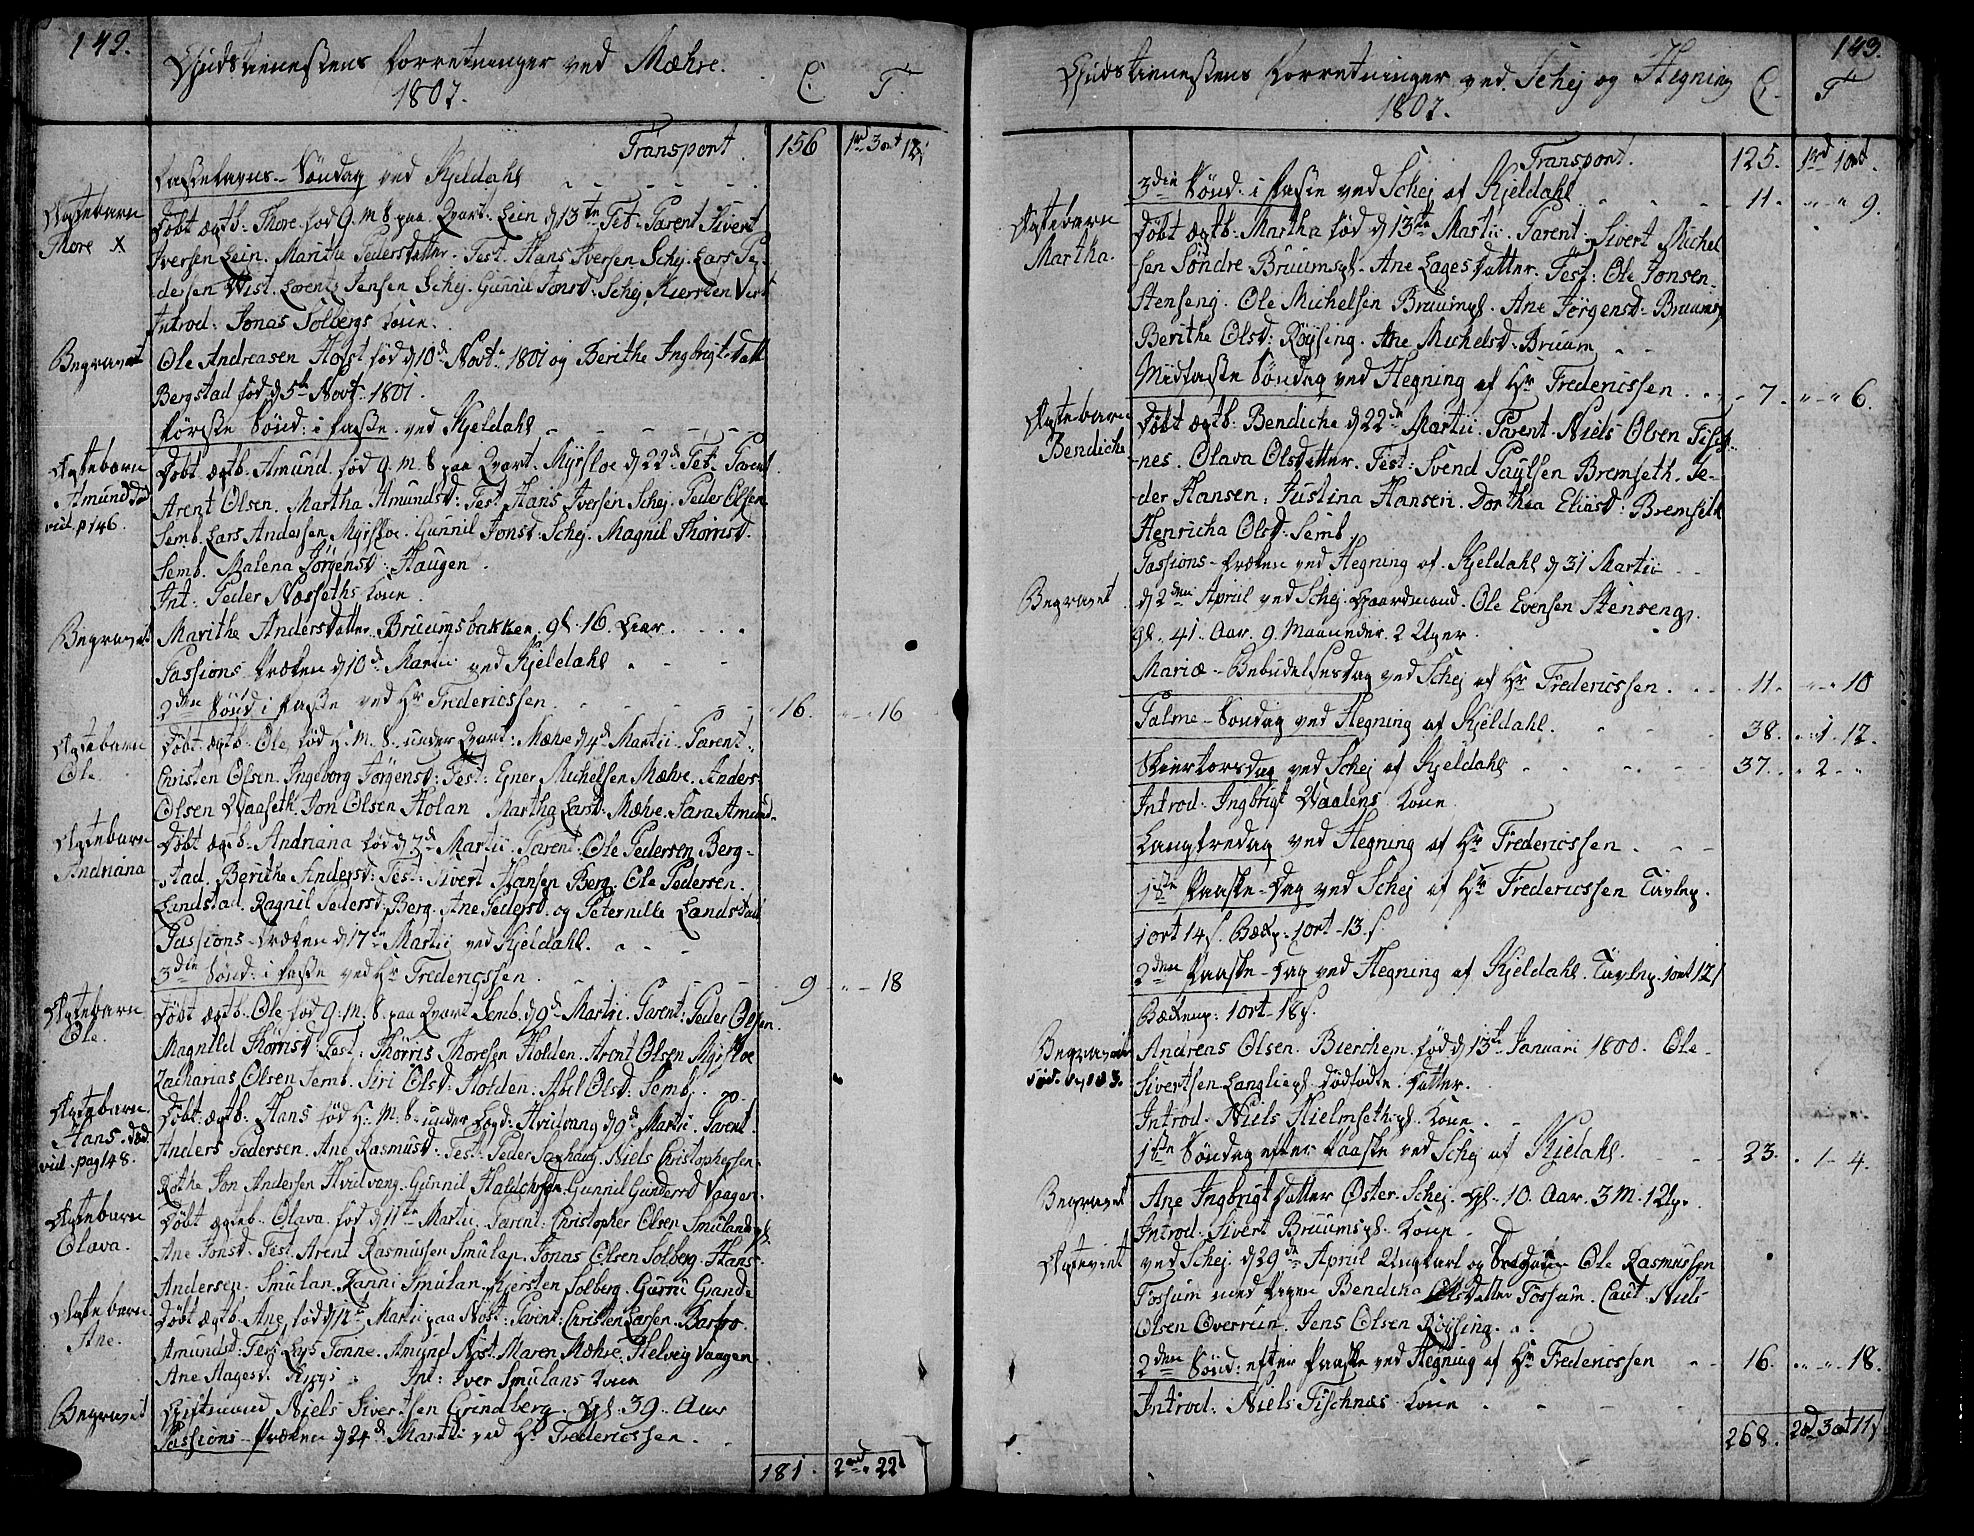 142.
Gudstienestens Forretninger ved Mæhre.
1807.
C. T.
Transport. 156 1rd 3ort 12s
Fastelavns-Söndag ved Kjeldahl
Ægtebarn Thore X
Döbt ægtb. Thore. fød 9. M. S. paa Qvart. Lein d 13te Feb. Parent Sivert
Iversen Lein. Marithe Pedersdatter. Test. Hans Iversen Schej. Lars Pe-
dersen Wist. Lorents Jensen Schej. Gunnil Jonsd: Schej. Kiersten Vist
Introd: Jonas Solbergs Kone.
Begravet
Ole Andreasen Holst fød d 10d Novb: 1801 og Berithe Ingbrigtsdatt
Bergstad fød d 5te Novb: 1801.
Förste Sönd: i Faste ved Kjeldahl
Ægtebarn Amund død vid. p 146.
Döbt ægtb. Amund. fød 9. M. S paa Qvart. Myrsloe d 22d Feb. Parent
Arent Olsen. Martha Amundsd: Test Hans Iversen Schej. Peder Olsen
Semb. Lars Andersen Myrsloe. Gunnil Jonsd: Schej. Magnil Thorrisd.
Semb. Malena Jørgensd: Haugen.
Int: Peder Næsseths Kone.
Begravet
Marithe Andersdatter Bruumsbakken. gl. 16. Aar.
Passions-Præken d 10d Martii ved Kjeldahl
2den Sönd: i Faste ved Hr Fredericssen. 16. 16
Ægtebarn Ole.
Döbt ægtb. Ole, fød H. M. S. under Qvart: Mæhre d 4d Martii. Parent.
Christen Olsen. Ingeborg Jørgensd: Test: Ejner Michelsen Mæhre. Anders
Olsen Waaseth. Jon Olsen Holan Martha Larsd: Mæhre. Sara Amund.
Ægtebarn Andriana
Döbt ægtb. Andriana fød d 3d Martii. Parent. Ole Pedersen Berg-
stad. Berithe Andersd: Test: Sivert Hansen Berg. Ole Pedersen.
Landstad. Ragnil Pedersd: Berg. Ane Pedersd. og Peternille Landstad
Passions-Præken d 17te Martii ved Kjeldahl.
3die Sönd: i Faste ved Hr Fredericssen. 9 18
Ægtebarn Ole.
Döbt ægtb. Ole fød 9. M. S. paa Qvart Semb. d 9d Martii. Parent: Peder Olsen.
Magnild Thorrisd Test: Thorris Thoresen Holden. Arent Olsen Myrsloe
Zacharias Olsen Semb. Siri Olsd: Holden: Abel Olsd: Semb.
Ægtebarn Hans. død vid. pag 148.
Döbt: ægtb. Hans fød H. M. S. under Hvidvang d 9d Martii. Parent.
Anders Pedersen. Ane Rasmusd: Test: Peder Saxhaug. Niels Christophersen
Røthe Jon Andersen Hvidvang. Gunnil Gunnil Gundersd Vaagen.
Ægtebarn Olava.
Döbt ægteb. Olava. fød d 11te Martii. Parent: Christopher Olsen Smulandpl.
Ane Jonsd. Test. Arent Rasmussen Smulan. Jonas Olsen Solberg. Hans
Andersen. Smulan. Smulan. Kjersten Solberg. Guru Grande
Ægtebarn Ane.
Döbt ægtb. Ane. fød d 12te Martii paa Nöst: Parent: Christen Larsen. Barbro
Amundsd: Test: Tonne. Amund Nöst. Maren Mæhre. Helveig Vaagen
Ane Hagesd. Int: Iver Smulans Kone
Begravet
Giftmand Niels Sivertsen Grindberg. Gl. 39. Aar
Passions-Præken d 24d Martii ved Hr Fredericssen.
181. 2rd 22s
143.
Gudstienestens Forretninger ved Schej og Hegning
1807.
C. T
Transport. 125. 1rd 1ort.
3die Sönd: i Faste ved Schej af Kjeldahl 11. 9.
Ægtebarn Martha.
Döbt ægtb. Martha fød d 13te Martii. Parent. Sivert Michel
sen Söndre Bruumspl. Ane Lagesdatter. Test: Ole Jonsen
Stenseng. Ole Michelsen Bruumpl. Ane Jörgensd. Bruums
Berithe Olsd: Röysing. Ane Michelsd. Bruum
Midfaste Söndag ved Hegning af Hr Fredericssen. 7. 6.
Ægtebarn Bendicha
Döbt ægtb. Bendicha d 22d Martii. Parent. Niels Olsen Fisch-
nes. Olava Olsdatter. Test: Svend Paulsen Bremseth. Pe-
der Hansen. Justina Hansen. Dorthea Eliasd: Bremseth
Henricha Olsd: Semb.
Passions-Præken ved Hegning af Kjeldahl d 31 Martii
Begravet
d 2den Apriil ved Schej Gaardmand. Ole Evensen Stenseng.
gl. 41. Aar. 9. Maaneder. 2 Uger.
Mariæ-Bebudelsesdag ved Schej af Hr Fredericssen. 11. 10
Palme-Sondag ved Hegning af Kjeldahl. 38. 1. 12.
Skiertorsdag ved Schej af Kjeldahl 37. 2
Introd. Ingbrigt Vaalens Kone
Langfredag ved Hegning af Hr Fredericssen.
1ste Paaske-Dag ved Schej af Hr Fredericssen Tavlep.
1ort 14s. Bækp. 1ort-13.s.
2den Paaske-Dag ved Hegning af Kjeldahl. Tavlep. 1ort 12s
Bæknup: 1ort-18s.
Begravet
Andreas Olsen. Bierchem. fød d 13te Januari 1800. Ole
Sivertsen Langliepl. dødfødte Datter.
Introd. Niels Hielmsethpl. Kone.
1ste Söndag efter Paaske ved Schej af Kjeldahl. 23. 1 4.
Begravet
Ane Ingbrigtdatter Øster Schej. Gl. 10. Aar. 3 M. 1 Uge.
Introd. Sivert Bruumspl. Kone
Ægteviet
ved Schej. d 29de April Ungkarl og Ole Rasmussen
Fossum med Pigen Bendicha Olsdatter Fossum. Caut. Niels
Olsen Overrein. Jens Olsen Röysing.
2den Sönd: efter Paaske ved Hegning af Hr Fredericssen 16. 18.
Introd. Niels Fischnæs Kone
268. 2rd 3ort 11s